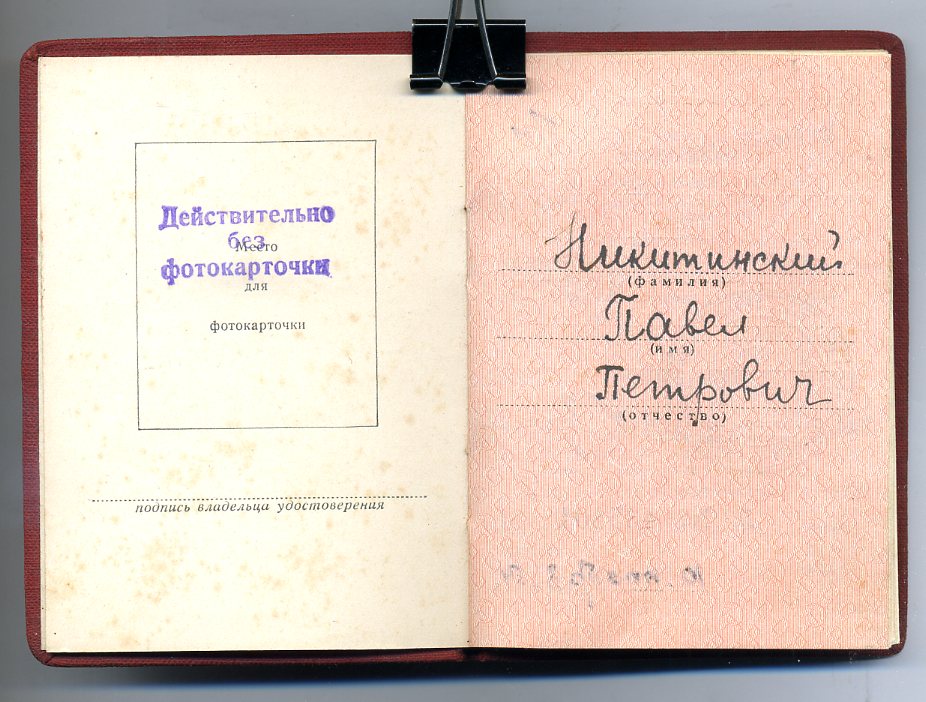 Действительно
без
Место
фотокарточки
для
фотокарточки
подпись владельца удостоверения
Никитинский
(фамилия)
Павел
(имя)
Петрович
(отчество)